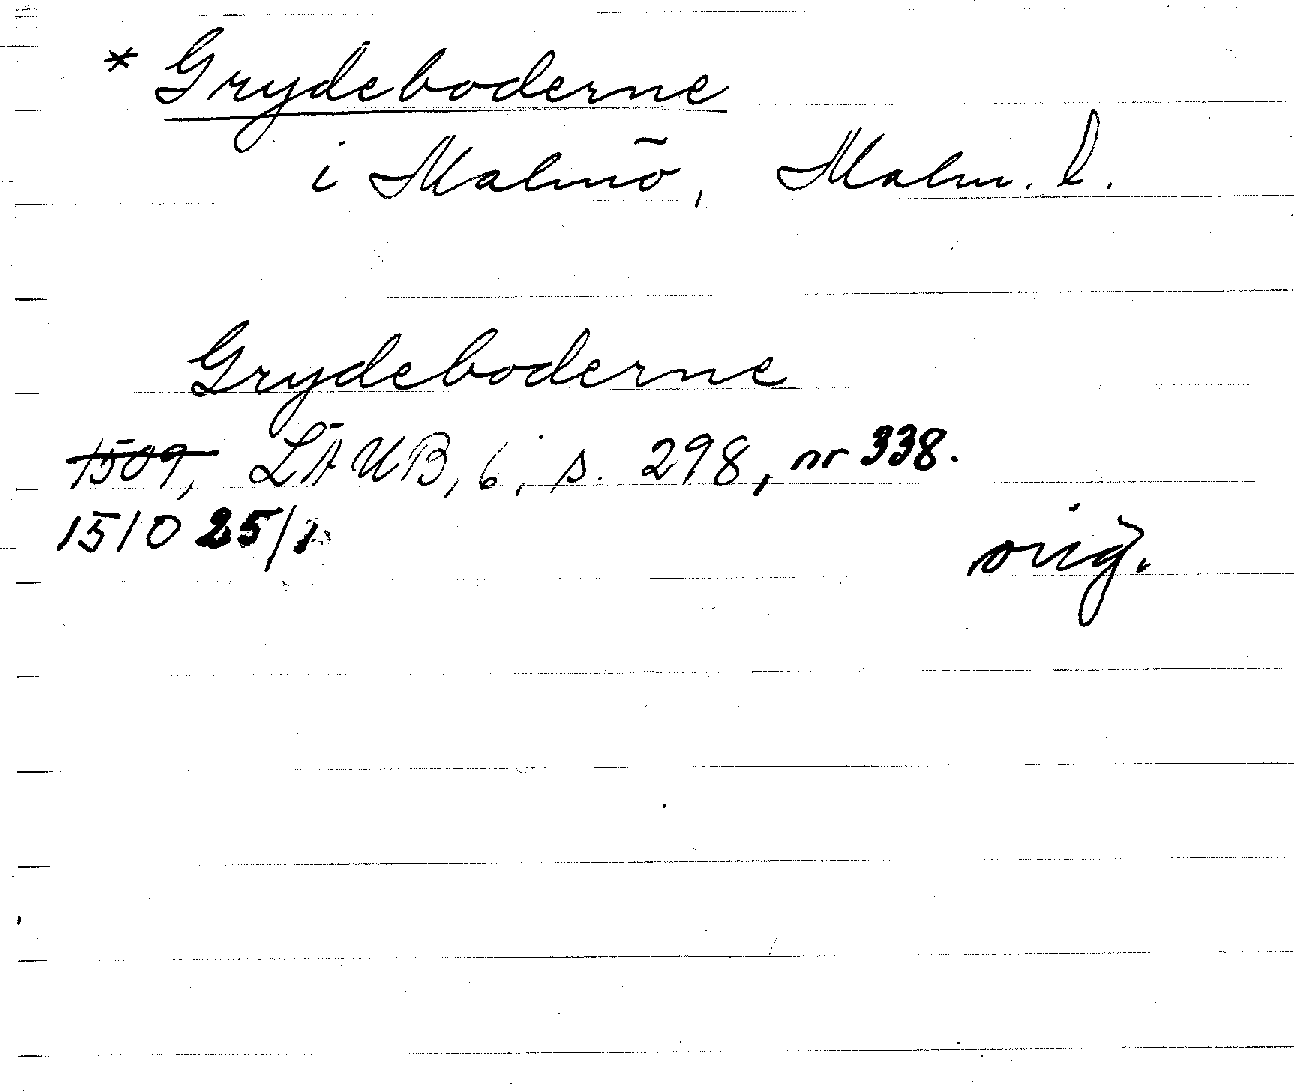 * Grydeboderne
i Malmö, Malm. l.
Grydeboderne
1509, LÄUB, 6, s. 298, nr 338.
1510 25/1
orig.